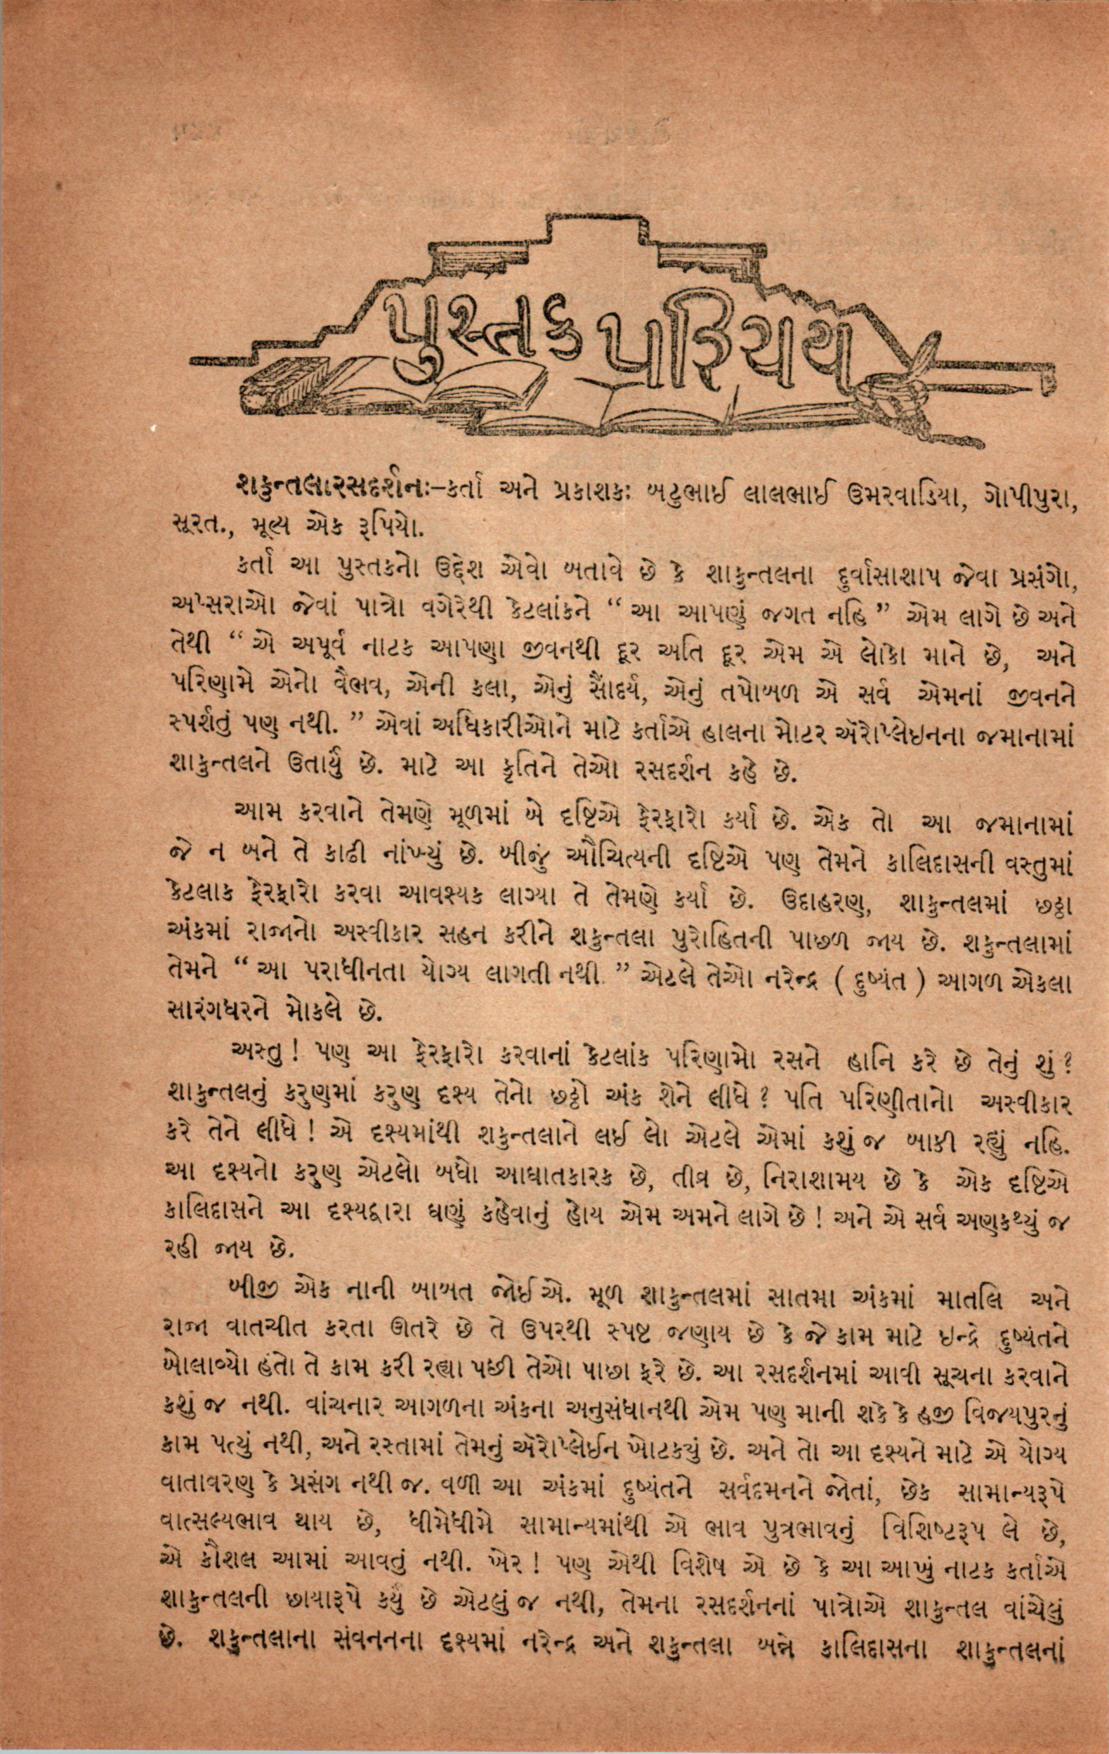 પુસ્તક પરિચય
શકુન્તલારસદર્શનઃ–કર્તા અને પ્રકાશકઃ બટુભાઈ લાલભાઈ ઉમરવાડિયા, ગોપીપુરા,
સૂરત., મૂલ્ય એક રૂપિયો.
કર્તા આ પુસ્તકનો ઉદ્દેશ એવો બતાવે છે કે શાકુન્તલના દુર્વાસાશાપ જેવા પ્રસંગો,
અપ્સરાઓ જેવાં પાત્રો વગેરેથી કેટલાંકને “ આ આપણું જગત નહિ ” એમ લાગે છે અને
તેથી “ એ અપૂર્વ નાટક આપણા જીવનથી દૂર અતિ દૂર એમ એ લોકો માને છે, અને
પરિણામે એનો વૈભવ, એની કલા, એનું સૌંદર્ય, એનું તપોબળ એ સર્વ એમનાં જીવનને
સ્પર્શતું પણ નથી. ” એવાં અધિકારીઓને માટે કર્તાએ હાલના મોટર ઍરોપ્લેઇનના જમાનામાં
શાકુન્તલને ઉતાર્યું છે. માટે આ કૃતિને તેઓ રસદર્શન કહે છે.
આમ કરવાને તેમણે મૂળમાં બે દૃષ્ટિએ ફેરફારો કર્યા છે. એક તો આ જમાનામાં
જે ન બને તે કાઢી નાંખ્યું છે. બીજું ઔચિત્યની દૃષ્ટિએ પણ તેમને કાલિદાસની વસ્તુમાં
કેટલાક ફેરફારો કરવા આવશ્યક લાગ્યા તે તેમણે કર્યા છે. ઉદાહરણ, શાકુન્તલમાં છઠ્ઠા
અંકમાં રાજાનો અસ્વીકાર સહન કરીને શકુન્તલા પુરોહિતની પાછળ જાય છે. શકુન્તલામાં
તેમને “ આ પરાધીનતા યોગ્ય લાગતી નથી. ” એટલે તેઓ નરેન્દ્ર ( દુષ્યંત ) આગળ એકલા
સારંગધરને મોકલે છે.
અસ્તુ ! પણ આ ફેરફારો કરવાનાં કેટલાંક પરિણામો રસને હાનિ કરે છે તેનું શું ?
શાકુન્તલનું કરુણમાં કરુણ દૃશ્ય તેનો છઠ્ઠો અંક શેને લીધે ? પતિ પરિણીતાનો અસ્વીકાર
કરે તેને લીધે ! એ દૃશ્યમાંથી શકુન્તલાને લઈ લો એટલે એમાં કશું જ બાકી રહ્યું નહિ.
આ દૃશ્યનો કરુણ એટલો બધો આઘાતકારક છે, તીવ્ર છે, નિરાશામય છે કે એક દૃષ્ટિએ
કાલિદાસને આ દૃશ્યદ્વારા ઘણું કહેવાનું હોય એમ અમને લાગે છે ! અને એ સર્વ અણકથ્યું જ
રહી જાય છે.
બીજી એક નાની બાબત જોઈએ. મૂળ શાકુન્તલમાં સાતમા અંકમાં માતલિ અને
રાજા વાતચીત કરતા ઊતરે છે તે ઉપરથી સ્પષ્ટ જણાય છે કે જે કામ માટે ઇન્દ્રે દુષ્યંતને
બોલાવ્યો હતો તે કામ કરી રહ્યા પછી તેઓ પાછા ફરે છે. આ રસદર્શનમાં આવી સૂચના કરવાને
કશું જ નથી. વાંચનાર આગળના અંકના અનુસંધાનથી એમ પણ માની શકે કે હજી વિજયપુરનું
કામ પત્યું નથી, અને રસ્તામાં તેમનું ઍરોપ્લેઈન ખોટક્યું છે. અને તો આ દૃશ્યને માટે એ યોગ્ય
વાતાવરણ કે પ્રસંગ નથી જ. વળી આ અંકમાં દુષ્યંતને સર્વદમનને જોતાં, છેક સામાન્યરૂપે
વાત્સલ્યભાવ થાય છે, ધીમેધીમે સામાન્યમાંથી એ ભાવ પુત્રભાવનું વિશિષ્ટરૂપ લે છે,
એ કૌશલ આમાં આવતું નથી. ખેર ! પણ એથી વિશેષ એ છે કે આ આખું નાટક કર્તાએ
શાકુન્તલની છાયારૂપે કર્યું છે એટલું જ નથી, તેમના રસદર્શનનાં પાત્રોએ શાકુન્તલ વાંચેલું
છે. શકુન્તલાના સંવનનના દૃશ્યમાં નરેન્દ્ર અને શકુન્તલા બન્ને કાલિદાસના શાકુન્તલનાં